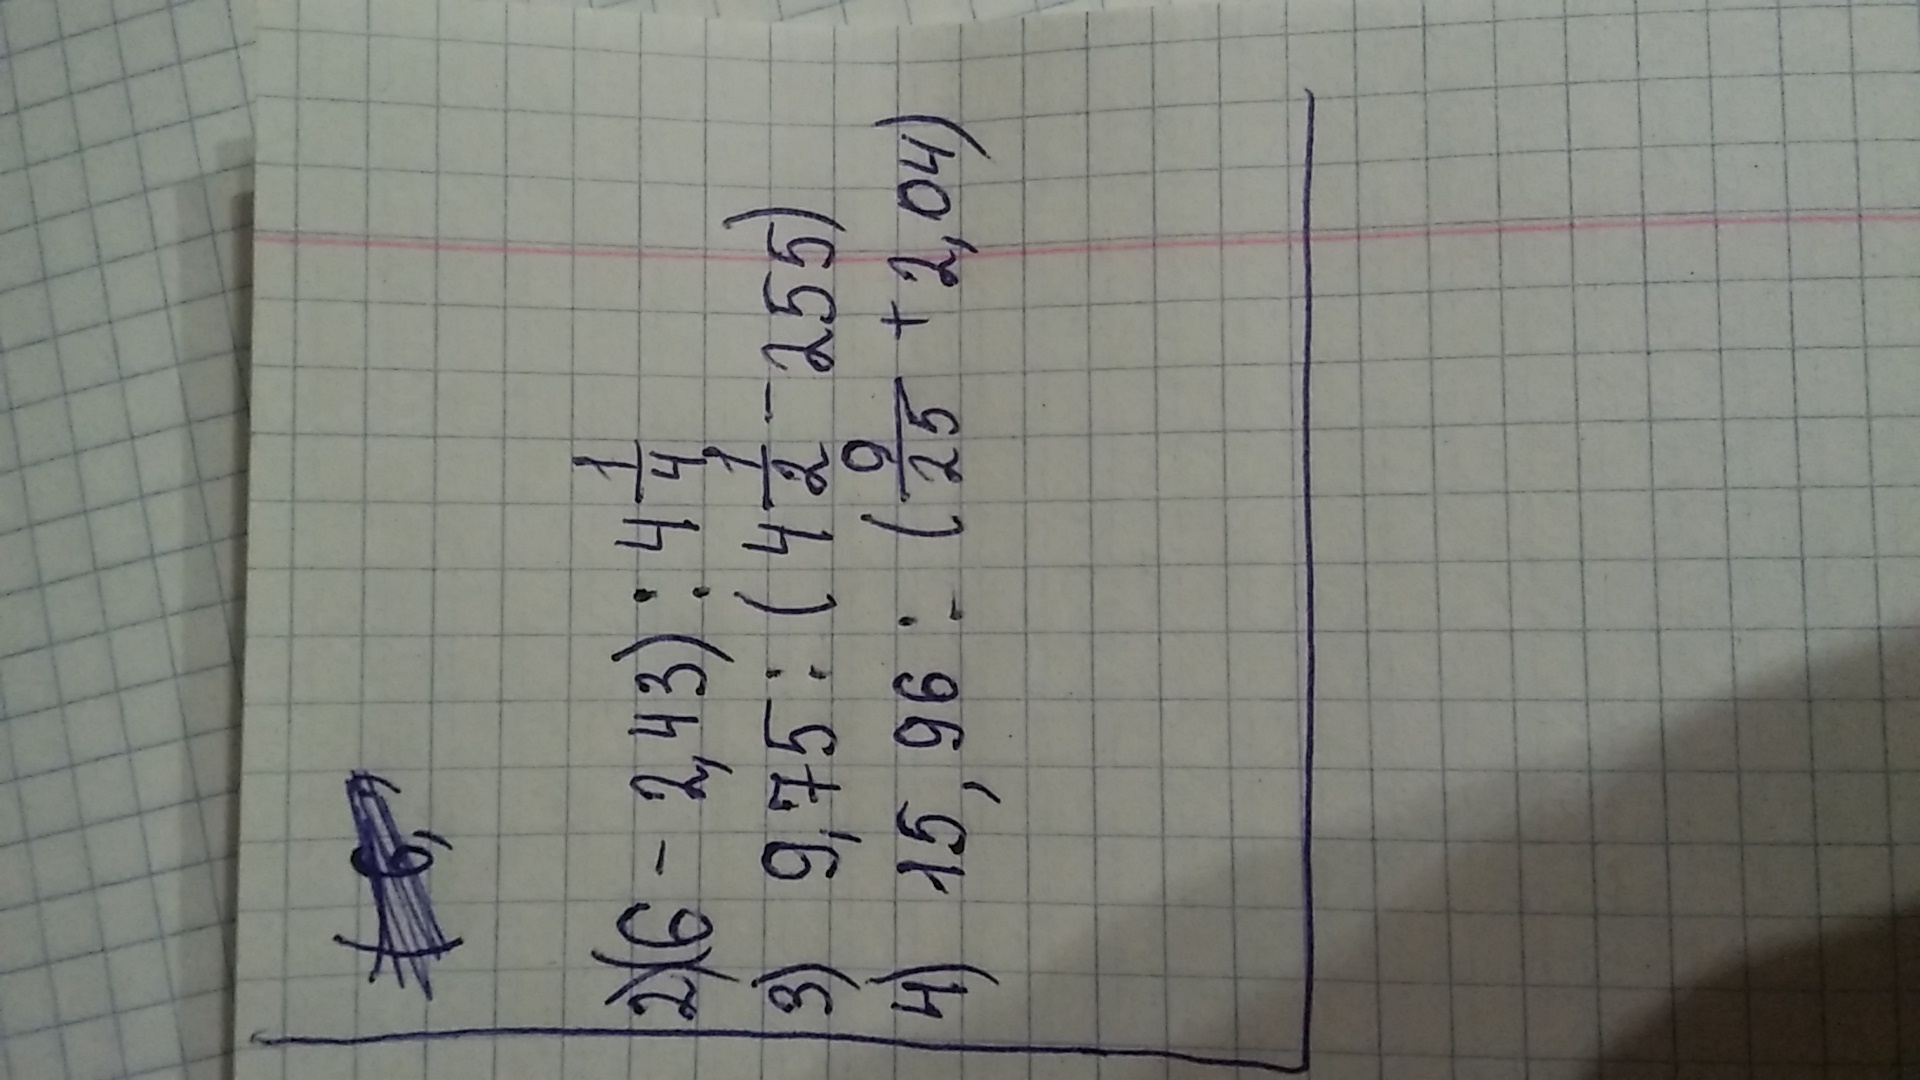 2)(6 - 2,43) : 4 1/4
3) 9,75 : (4 1/2 - 255)
4) 15,96 : (9/25 + 2,04)